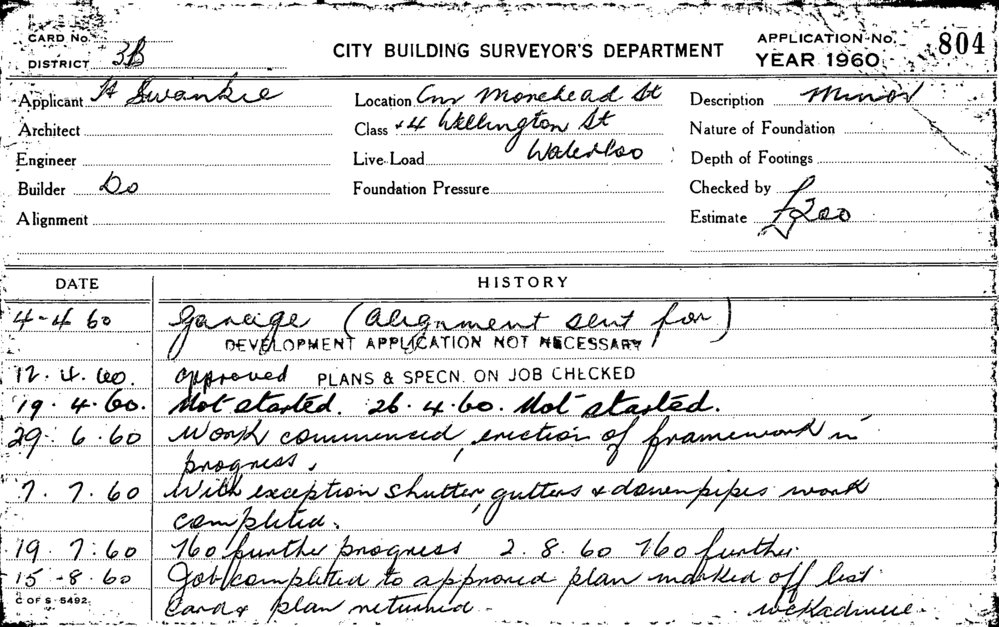 CARD No.
DISTRICT 3B
CITY BUILDING SURVEYOR'S DEPARTMENT
APPLICATION No. 804
YEAR 1960
Applicant H Swankie
Location Cnr Morehead St
Description Minor
Architect
Class + 4 Wellington St
Nature of Foundation
Engineer
Live Load Waterloo
Depth of Footings
Builder Do
Foundation Pressure
Checked by
Alignment
Estimate £200
DATE HISTORY
4-4 60 Garage (alignment sent for)
DEVELOPMENT APPLICATION NOT NECESSARY
12. 4. 60. approved PLANS & SPECN. ON JOB CHECKED
19. 4. 60. Not started. 26. 4. 60. Not started.
29. 6. 60 Work commenced, erection of framework in
progress.
7. 7. 60 With exception shutter, gutters & downpipes work
completed.
19. 7. 60 No further progress 2. 8. 60 No further
15-8. 60 Job completed to approved plan marked off list
C OF S 5492. Card & plan returned -